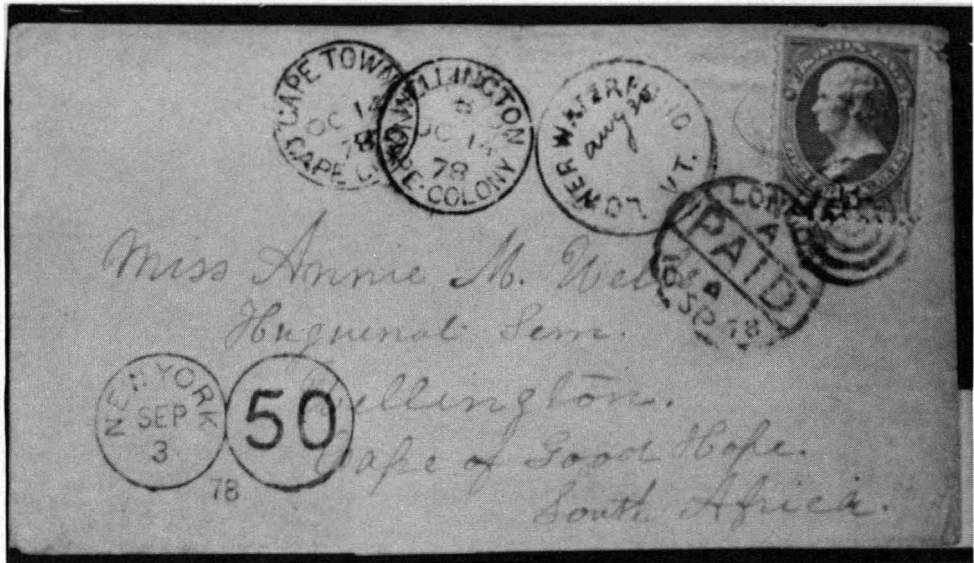 CAPE TOWN
OC 14
78
CAPE
WELLINGTON
OC 14
78
CAPE·COLONY
LOWER WATERFORD
aug 30
VT.
LONDON
A
PAID
16 SP 78
Miss Annie M. Wells
Huguenot Sem.
Wellington.
Cape of Good Hope.
South Africa.
NEW YORK
SEP
3
78
50